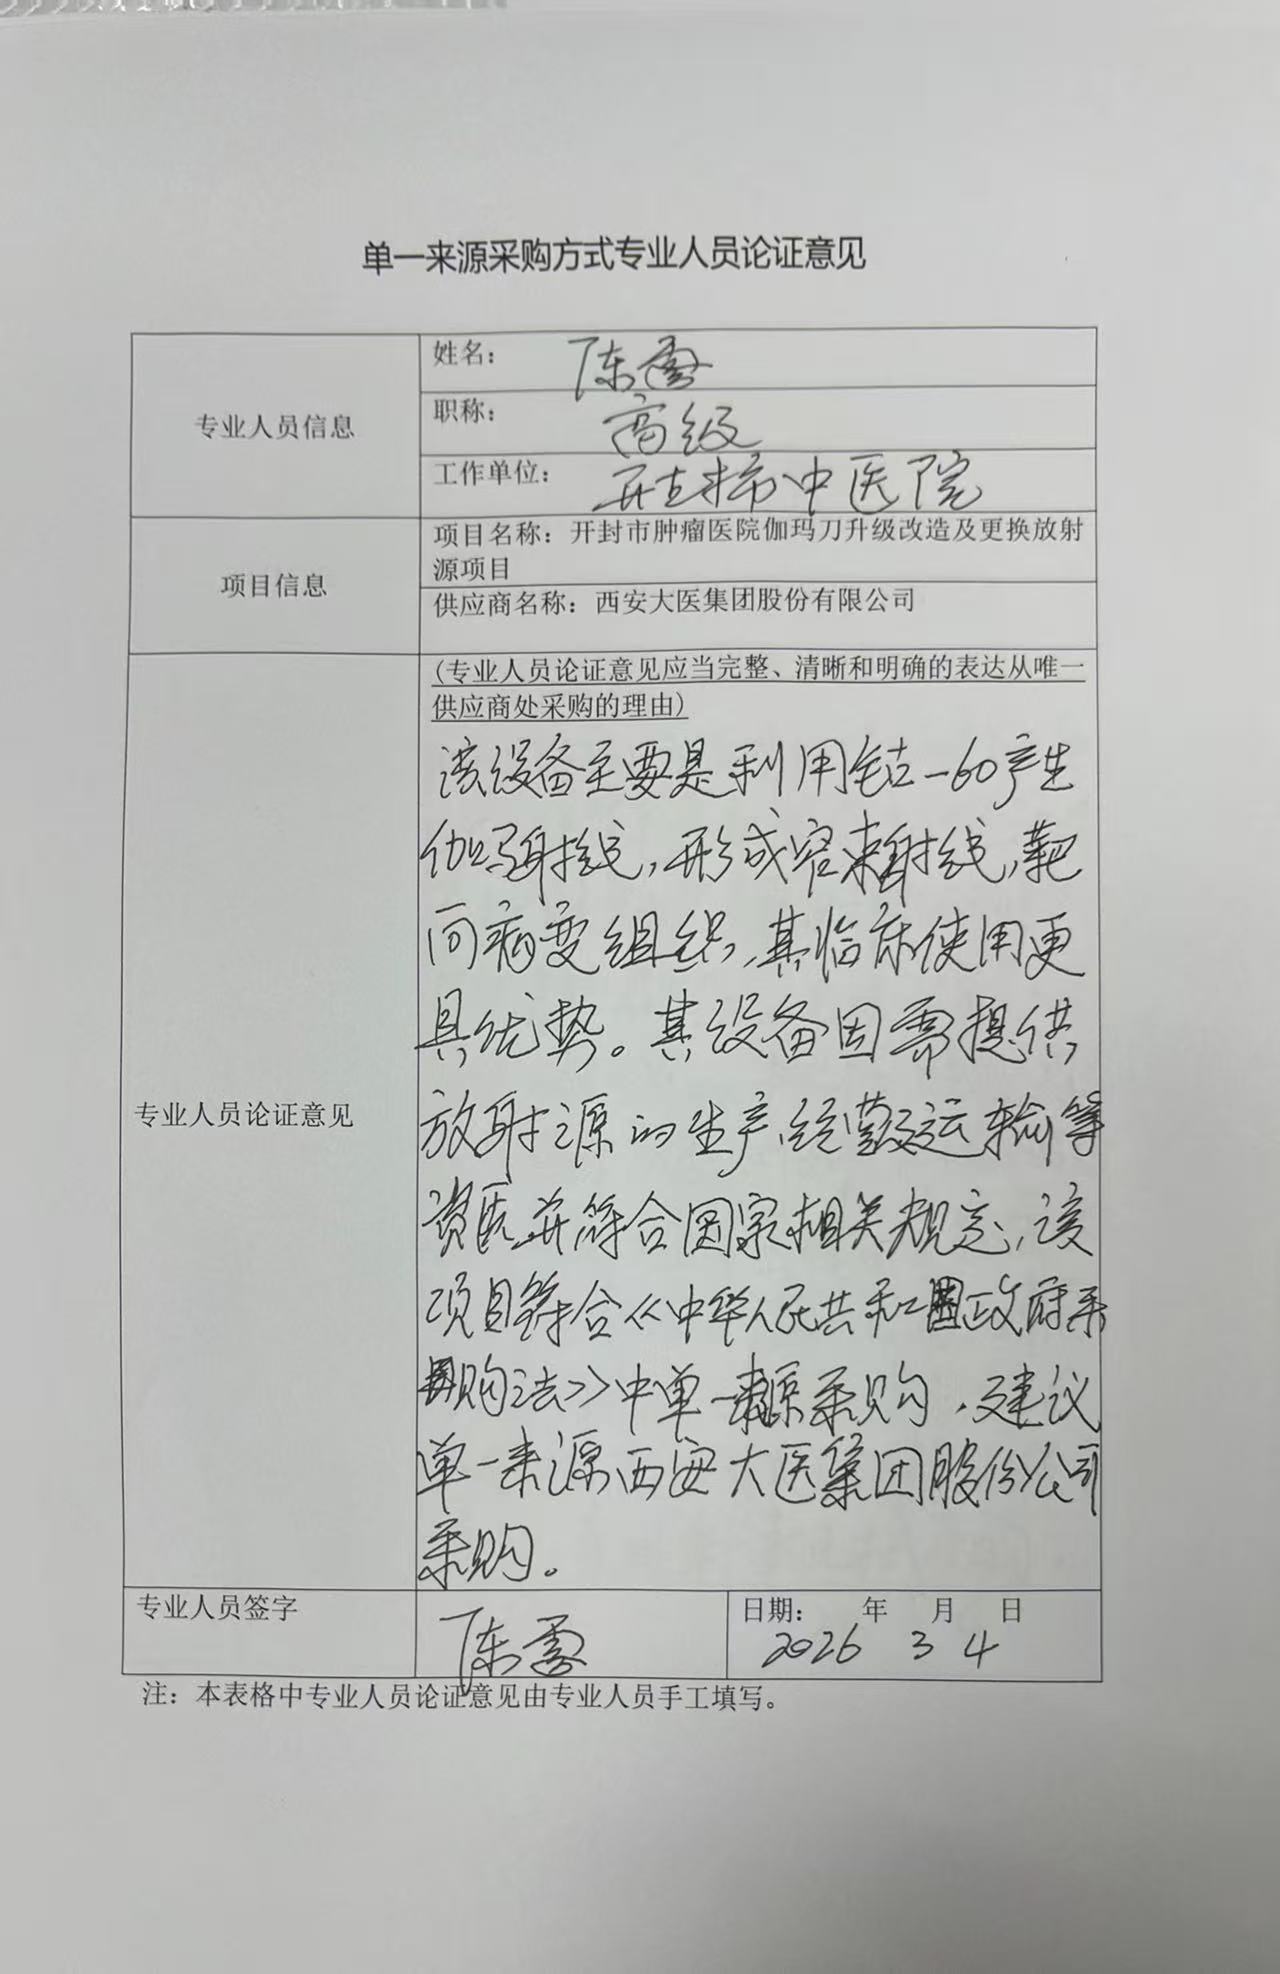 单一来源采购方式专业人员论证意见
专业人员信息
姓名：陈
职称：高级
工作单位：开封市中医院
项目信息
项目名称：开封市肿瘤医院伽玛刀升级改造及更换放射
源项目
供应商名称：西安大医集团股份有限公司
专业人员论证意见
(专业人员论证意见应当完整、清晰和明确的表达从唯一
供应商处采购的理由)
该设备主要是利用钴-60产生
伽马射线，形成窄束射线，靶
向病变组织，其临床使用更
具优势。其设备因需提供
放射源的生产、经营及运输等
资质并符合国家相关规定，该
项目符合《中华人民共和国政府采
购法》中单一来源采购，建议
单一来源西安大医集团股份公司
采购。
专业人员签字
陈
日期： 年 月 日
2026 3 4
注：本表格中专业人员论证意见由专业人员手工填写。